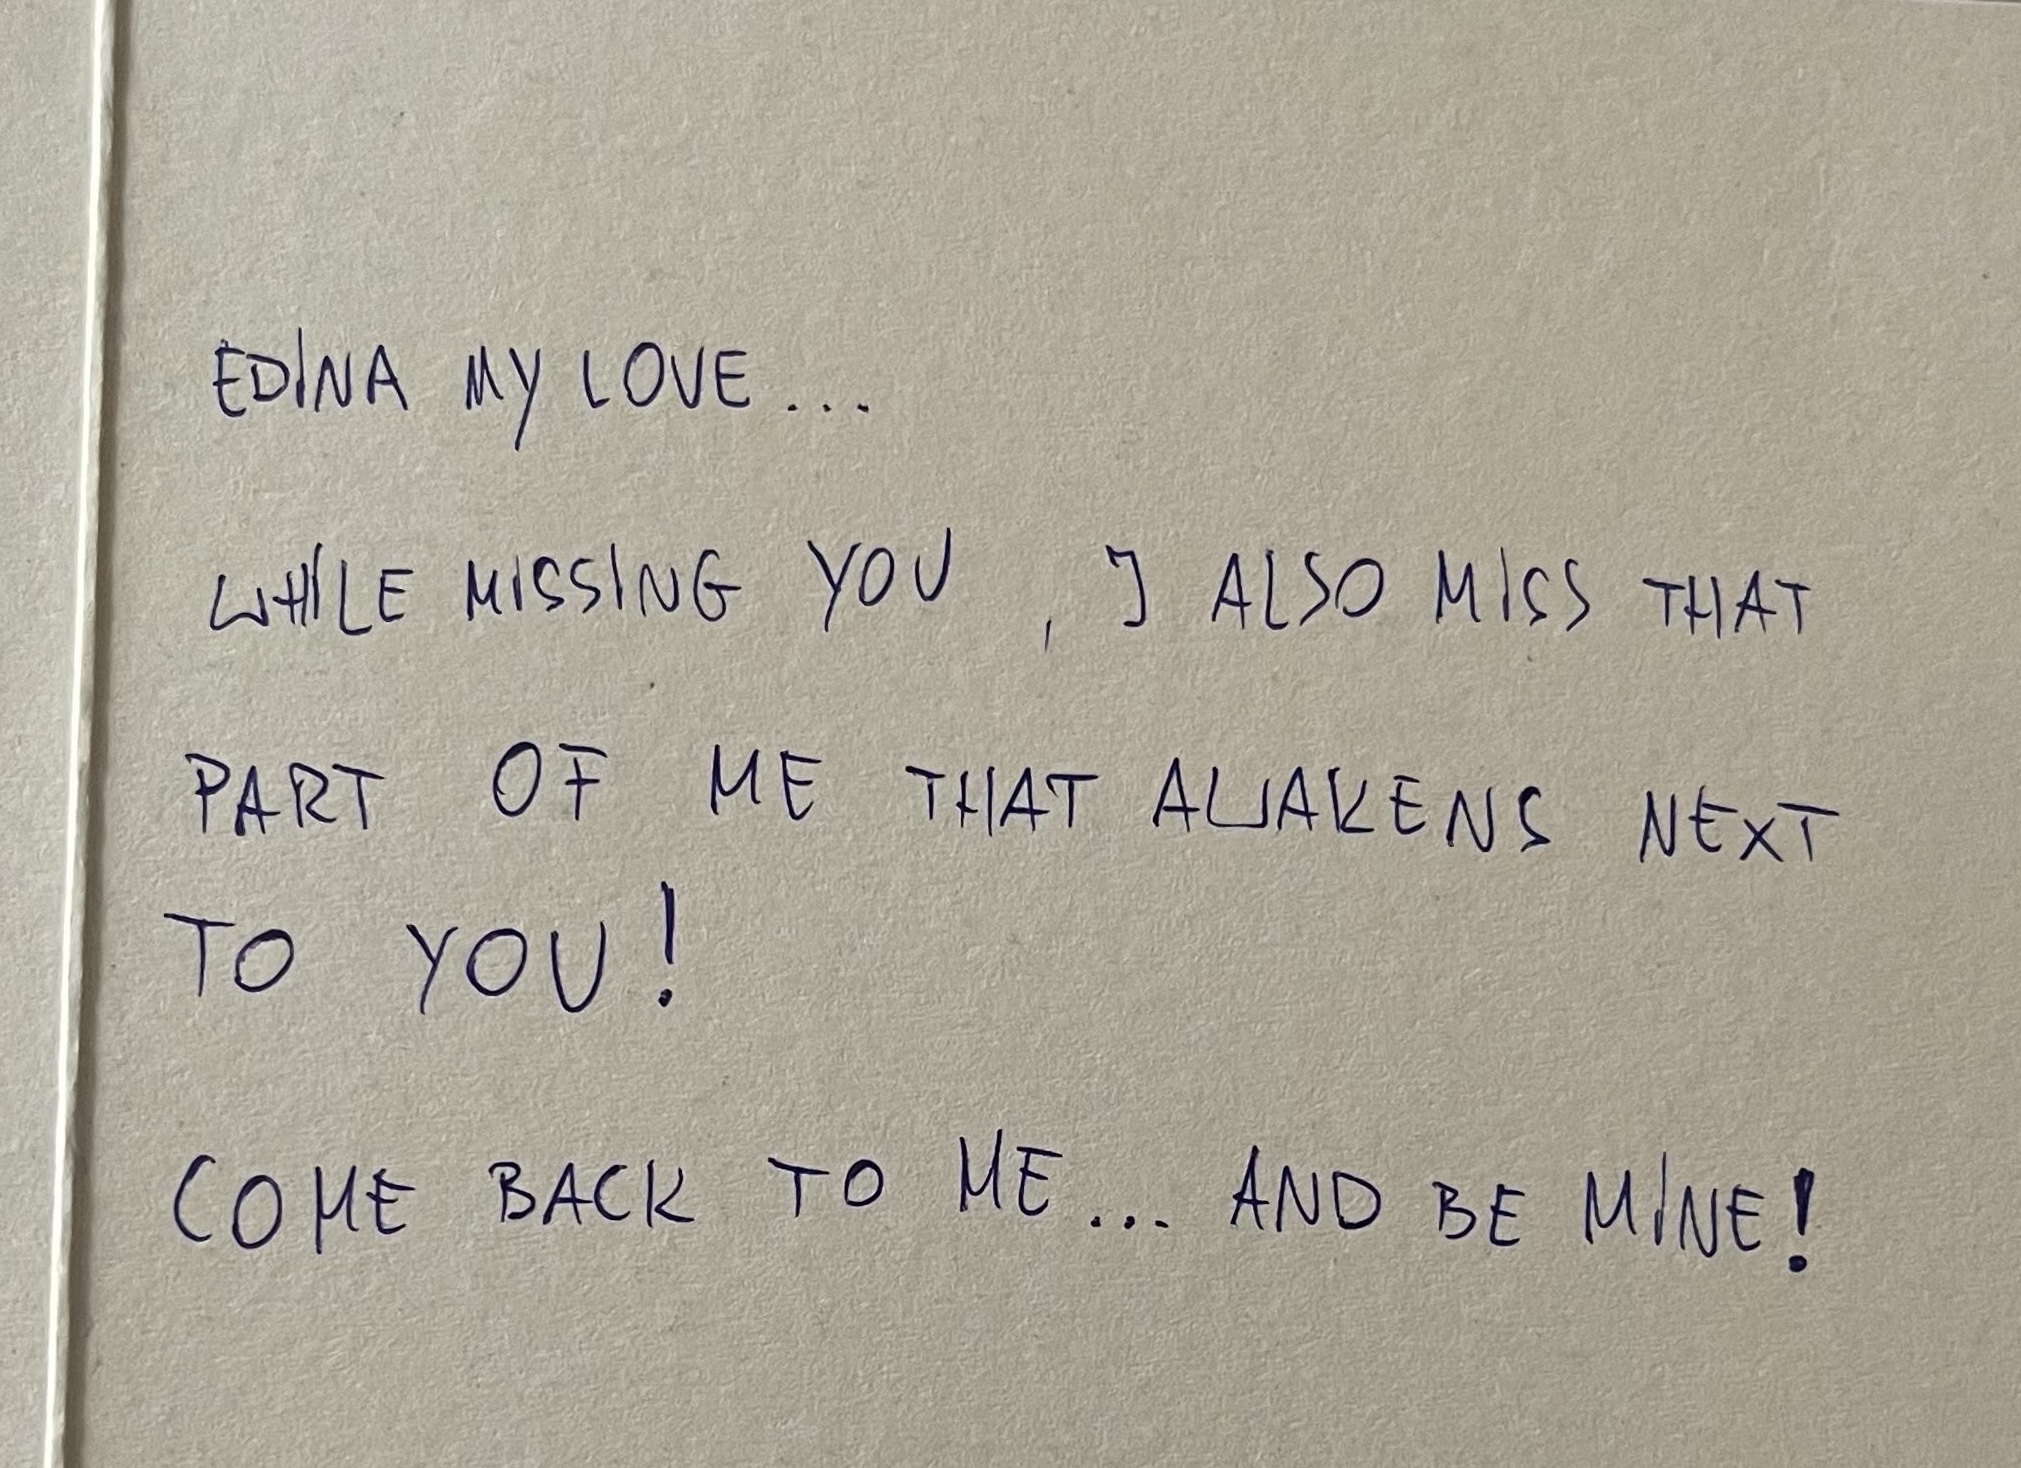 EDINA MY LOVE...
WHILE MISSING YOU, I ALSO MISS THAT
PART OF ME THAT AWAKENS NEXT
TO YOU!
COME BACK TO ME... AND BE MINE!